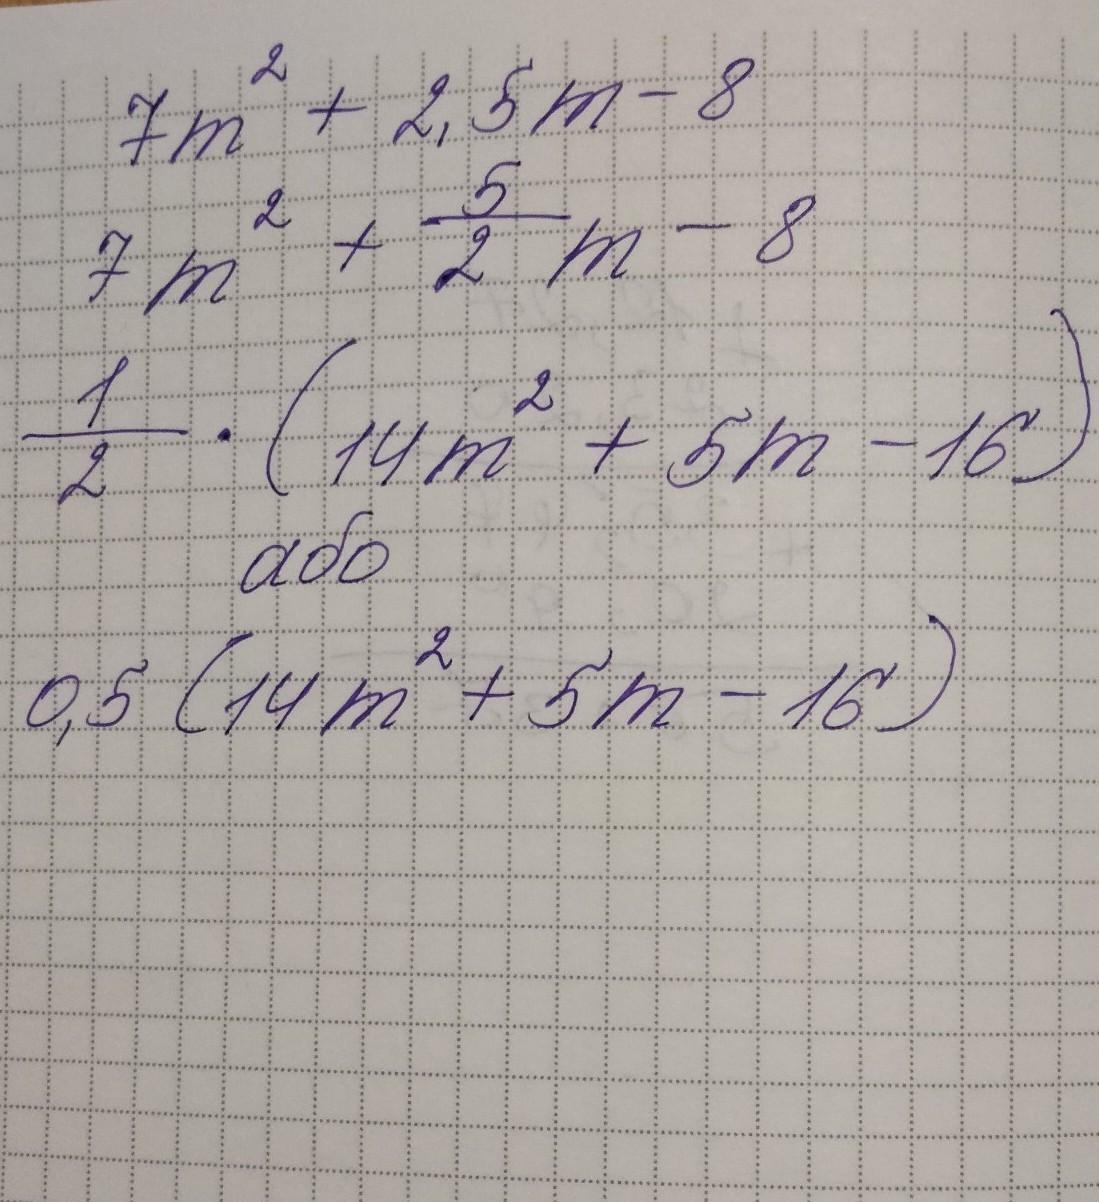 7m² + 2,5m - 8
7m² + 5/2 m - 8
1/2 · (14m² + 5m - 16)
або
0,5 (14m² + 5m - 16)